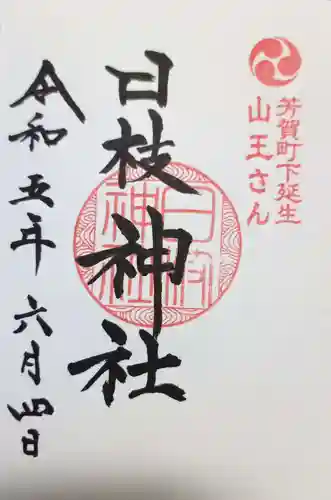 芳賀町下延生
山王さん
日枝神社
令和五年六月四日